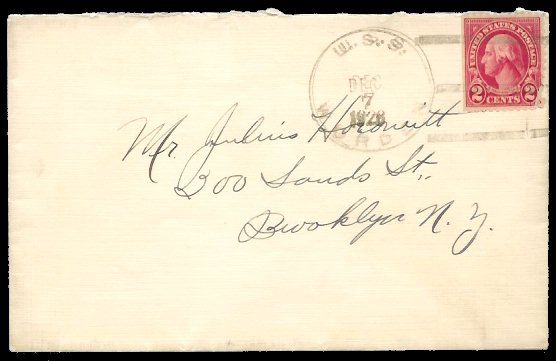 U.S.S.
DEC
7
1928
UNITED STATES POSTAGE
2 CENTS 2
Mr. Julius Horowitt
200 Sands St.
Brooklyn N. Y.